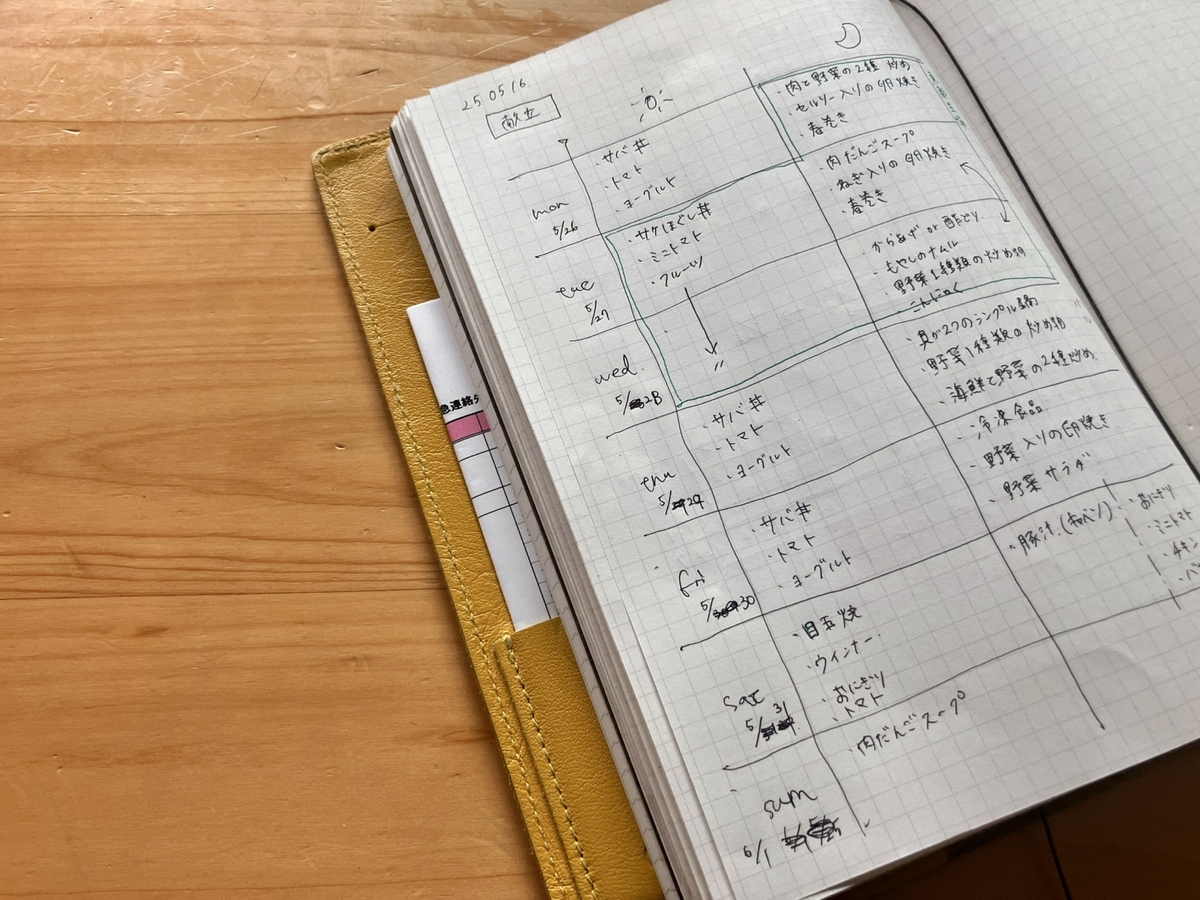 25.05.16
献立
mon
5/26
・サバ丼
・トマト
・ヨーグルト
・肉と野菜の2種炒め
・セルリー入りの卵焼き
・春巻き
tue
5/27
・サケほぐし丼
・ミニトマト
・フルーツ
・肉だんごスープ
・ねぎ入りの卵焼き
・春巻き
wed.
5/28
〃
・からあげ or 酢どり
・もやしのナムル
・野菜1種類の炒め物
こんにゃく
thu
5/29
・サバ丼
・トマト
・ヨーグルト
・具が2つのシンプル鍋
・野菜1種類の炒め物
・海鮮と野菜の2種炒め
fri
5/30
・サバ丼
・トマト
・ヨーグルト
・冷凍食品
・野菜入りの卵焼き
・野菜サラダ
sat
5/31
・目玉焼
・ウィンナー
・おにぎり
・トマト
・豚汁.
・おにぎり
・ミニトマト
・チキン
sun
6/1
・肉だんごスープ
急連絡